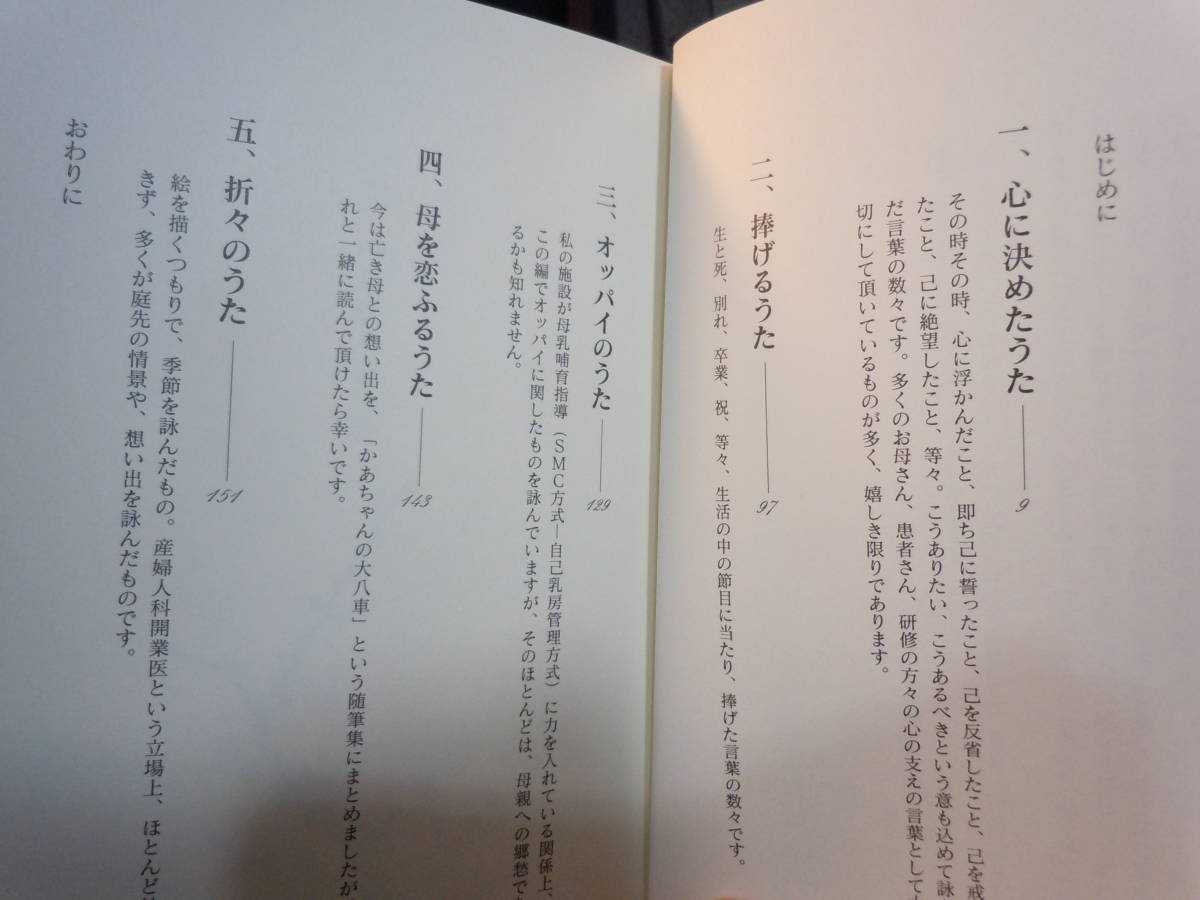 はじめに
一、心に決めたうた――― 9
その時その時、心に浮かんだこと、即ち己に誓ったこと、己を反省したこと、己を戒
たこと、己に絶望したこと、等々。こうありたい、こうあるべきという意も込めて詠
だ言葉の数々です。多くのお母さん、患者さん、研修の方々の心の支えの言葉として
切にして頂いているものが多く、嬉しき限りであります。
二、捧げるうた――― 97
生と死、別れ、卒業、祝、等々、生活の中の節目に当たり、捧げた言葉の数々です。
三、オッパイのうた――― 129
私の施設が母乳哺育指導（SMC方式―自己乳房管理方式）に力を入れている関係上、
この編でオッパイに関したものを詠んでいますが、そのほとんどは、母親への郷愁で
るかも知れません。
四、母を恋ふるうた――― 143
今は亡き母との想い出を、「かあちゃんの大八車」という随筆集にまとめましたが
れと一緒に読んで頂けたら幸いです。
五、折々のうた――― 151
絵を描くつもりで、季節を詠んだもの。産婦人科開業医という立場上、ほとんど
きず、多くが庭先の情景や、想い出を詠んだものです。
おわりに